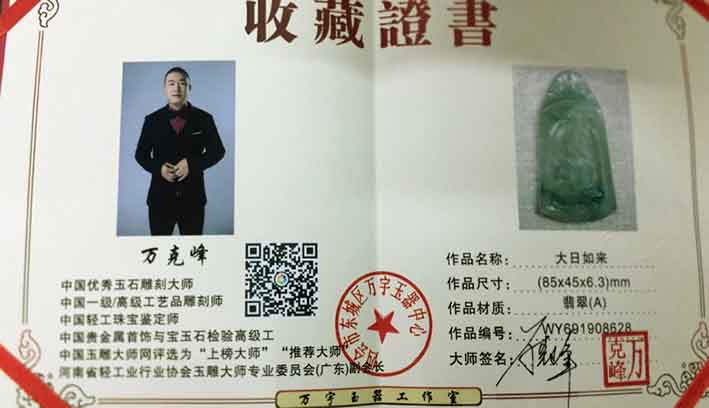 收藏證書
万克峰
中国优秀玉石雕刻大师
中国一级/高级工艺品雕刻师
中国轻工珠宝鉴定师
中国贵金属首饰与宝玉石检验高级工
中国玉雕大师网评选为“上榜大师”“推荐大师”
河南省轻工业行业协会玉雕大师专业委员会(广东)副会长
作品名称: 大日如来
作品尺寸: (85x45x6.3)mm
作品材质: 翡翠(A)
作品编号: WY691908628
大师签名:
万克峰
市东城区万宇玉器中心
万宇玉器工作室